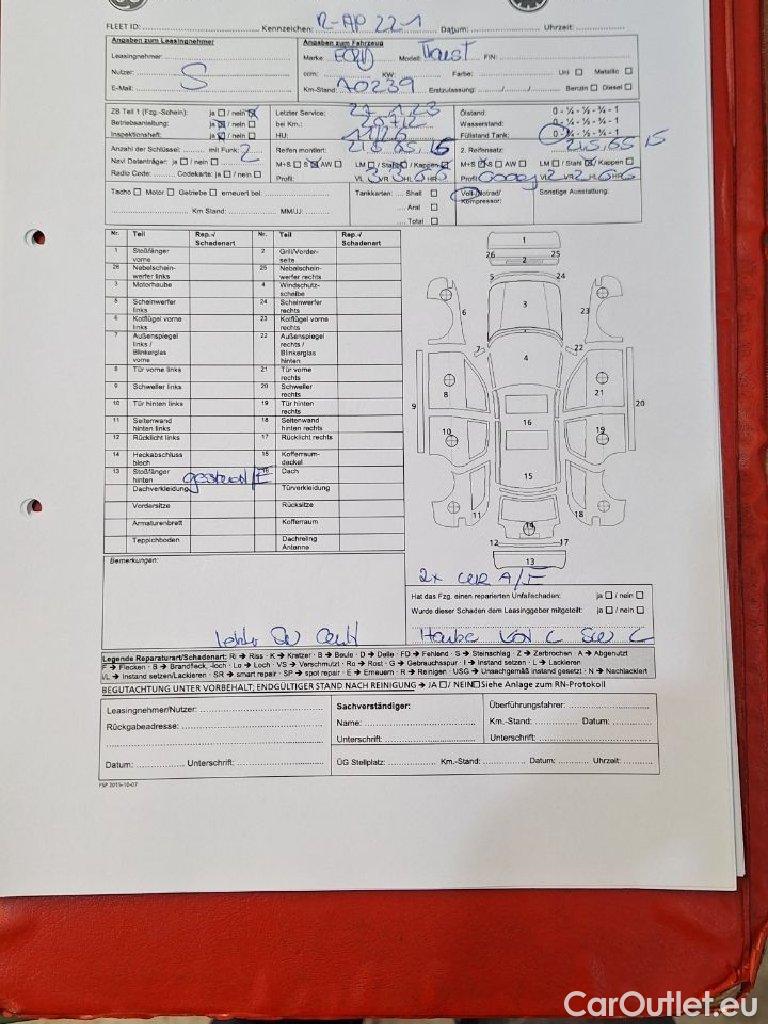 FLEET ID: Kennzeichen: R-AP 221 Datum: Uhrzeit:
Angaben zum Leasingnehmer Angaben zum Fahrzeug
Leasingnehmer: Marke FORD Modell: FIN:
Nutzer: S ccm: KW: Farbe: Uni □ Metallic □
E-Mail: Km-Stand: 70239 Erstzulassung: Benzin □ Diesel □
ZB Teil 1 (Fzg.-Schein): ja □ / nein ☒ Letzter Service: Ölstand: 0 - ¼ - ½ - ¾ - 1
Betriebsanleitung: ja ☒ / nein □ bei Km.: Wasserstand: 0 - ¼ - ½ - ¾ - 1
Inspektionsheft: ja ☒ / nein □ HU: Füllstand Tank: 0 - ¼ - ½ - ¾ - 1
Anzahl der Schlüssel: mit Funk: 2 Reifen montiert: 215 65 15 2. Reifensatz: 215 65 15
Navi Datenträger: ja □ / nein □ M+S □ S ☒ AW □ LM □ / Stahl ☒ / Kappen M+S ☒ S □ AW □ LM □ / Stahl ☒ / Kappen □
Radio Code: Codekarte: ja □ / nein □ Profil: VL VR HL HR Profil: VL VR HL HR
Tacho □ Motor □ Getriebe □ erneuert bei: Tankkarten: Shell □ Voll-/Notrad/ Sonstige Ausstattung:
Aral □ Kompressor:
Km Stand: MM/JJ: Total □
Nr. Teil Rep.-/ Schadenart Nr. Teil Rep.-/ Schadenart
1 Stoßfänger vorne 2 Grill/Vorderseite
26 Nebelscheinwerfer links 25 Nebelscheinwerfer rechts
3 Motorhaube 4 Windschutzscheibe
5 Scheinwerfer links 24 Scheinwerfer rechts
6 Kotflügel vorne links 23 Kotflügel vorne rechts
7 Außenspiegel links / Blinkerglas vorne 22 Außenspiegel rechts / Blinkerglas hinten
8 Tür vorne links 21 Tür vorne rechts
9 Schweller links 20 Schweller rechts
10 Tür hinten links 19 Tür hinten rechts
11 Seitenwand hinten links 18 Seitenwand hinten rechts
12 Rücklicht links 17 Rücklicht rechts
14 Heckabschluss blech 15 Kofferraumdeckel
13 Stoßfänger hinten 16 Dach
Dachverkleidung Türverkleidung
Vordersitze Rücksitze
Armaturenbrett Kofferraum
Teppichboden Dachreling Antenne
1
26 2 25
5 24
6 3 23
7 4 22
8 21
9 10 16 19 20
15
11 14 18
12 17
13
Bemerkungen:
2x A/E
Hat das Fzg. einen reparierten Unfallschaden: ja □ / nein □
Wurde dieser Schaden dem Leasinggeber mitgeteilt: ja □ / nein □
Haube
Legende Reparaturart/Schadenart: Ri → Riss · K → Kratzer · B → Beule · D → Delle · FD → Fehlend · S → Steinschlag · Z → Zerbrochen · A → Abgenutzt
F → Flecken · B → Brandfleck, -loch · Lo → Loch · VS → Verschmutzt · Ro → Rost · G → Gebrauchsspur · I → Instand setzen · L → Lackieren
I/L → Instand setzen/Lackieren · SR → smart repair · SP → spot repair · E → Erneuern · R → Reinigen · USG → Unsachgemäß instand gesetzt · N → Nachlackiert
BEGUTACHTUNG UNTER VORBEHALT; ENDGÜLTIGER STAND NACH REINIGUNG → JA □ / NEIN □ Siehe Anlage zum RN-Protokoll
Leasingnehmer/Nutzer: Sachverständiger: Überführungsfahrer:
Rückgabeadresse: Name: Km.-Stand: Datum:
Unterschrift: Unterschrift:
Datum: Unterschrift: ÜG Stellplatz: Km.-Stand: Datum: Uhrzeit:
CarOutlet.eu